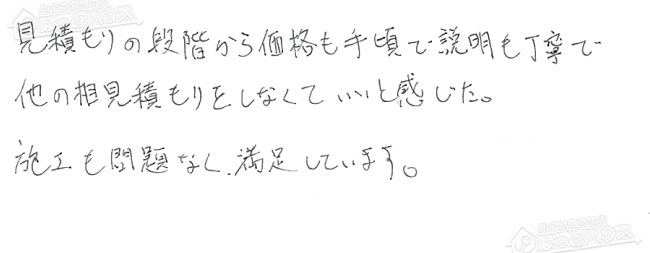 見積もりの段階から価格も手頃で説明も丁寧で
他の相見積もりをしなくていいと感じた。
施工も問題なく、満足しています。